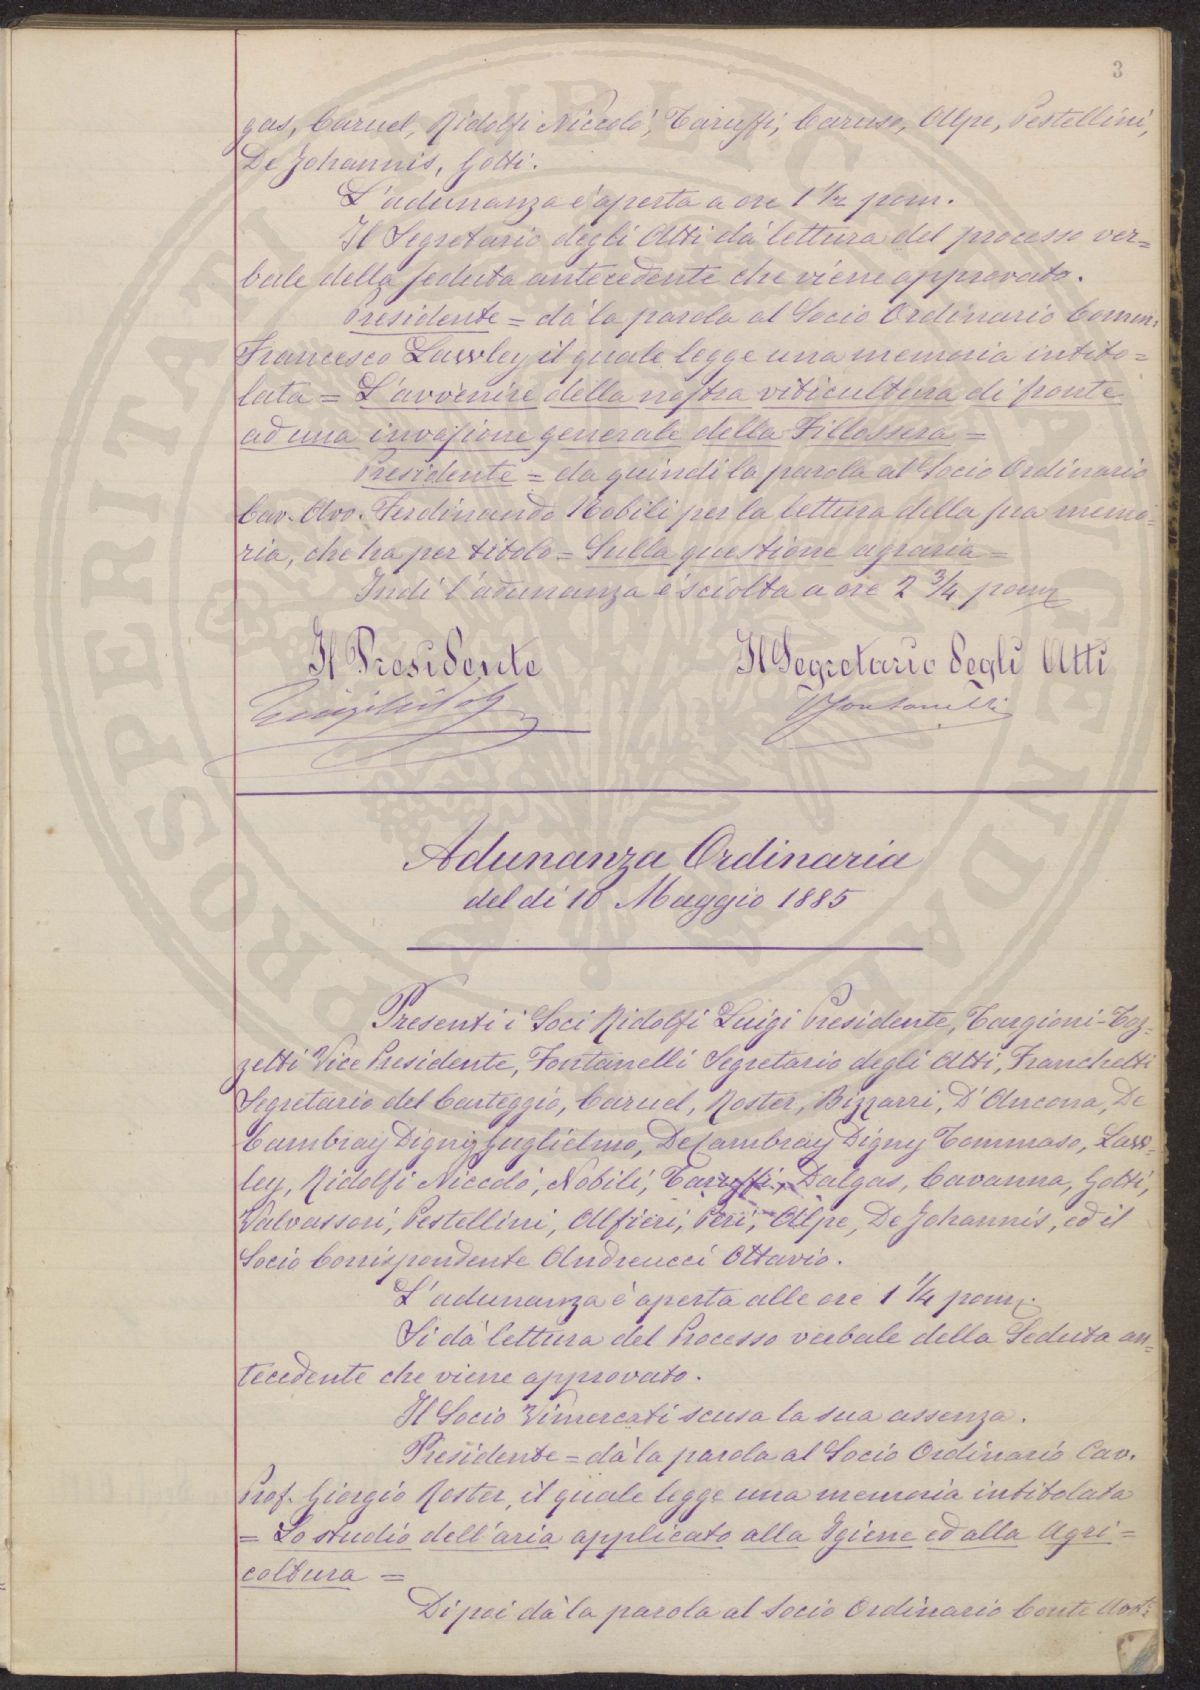 3
gas, Caruel, Ridolfi Niccolò, Taruffi, Caruso, Alpe, Pestellini,
De Johannis, Gotti.
L'adunanza è aperta a ore 1 1/2 pom.
Il Segretario degli Atti dà lettura del processo ver=
bale della seduta antecedente che viene approvato.
Presidente = dà la parola al Socio Ordinario Comm:
Francesco Lawley il quale legge una memoria intito=
lata = L'avvenire della nostra viticultura di fronte
ad una invasione generale della Fillossera =
Presidente = da quindi la parola al Socio Ordinario
Cav. Avv. Ferdinando Nobili per la lettura della sua memo=
ria, che ha per titolo = Sulla questione agraria =
Indi l'adunanza è sciolta a ore 2 3/4 pom
Il Presidente
Il Segretario degli Atti
Fontanelli
Adunanza Ordinaria
del dì 10 Maggio 1885
Presenti i Soci Ridolfi Luigi Presidente, Targioni-Toz=
zetti Vice Presidente, Fontanelli Segretario degli Atti, Franchetti
Segretario del Carteggio, Caruel, Roster, Bizzarri, D'Ancona, De
Cambray Digny Guglielmo, De Cambray Digny Tommaso, Law=
ley, Ridolfi Niccolò, Nobili, Taruffi, Dalgas, Cavanna, Gotti,
Valvassori, Pestellini, Alfieri, Peri, Alpe, De Johannis, ed il
Socio Corrispondente Andreucci Ottavio.
L'adunanza è aperta alle ore 1 1/4 pom.
Si dà lettura del Processo verbale della Seduta an=
tecedente che viene approvato.
Il Socio Vimercati scusa la sua assenza.
Presidente = dà la parola al Socio Ordinario Cav.
Prof. Giorgio Roster, il quale legge una memoria intitolata
= Lo studio dell'aria applicato alla Igiene ed alla Agri=
coltura =
Di poi dà la parola al Socio Ordinario Conte
PROSPERITATI PUBLICAE AUGENDAE